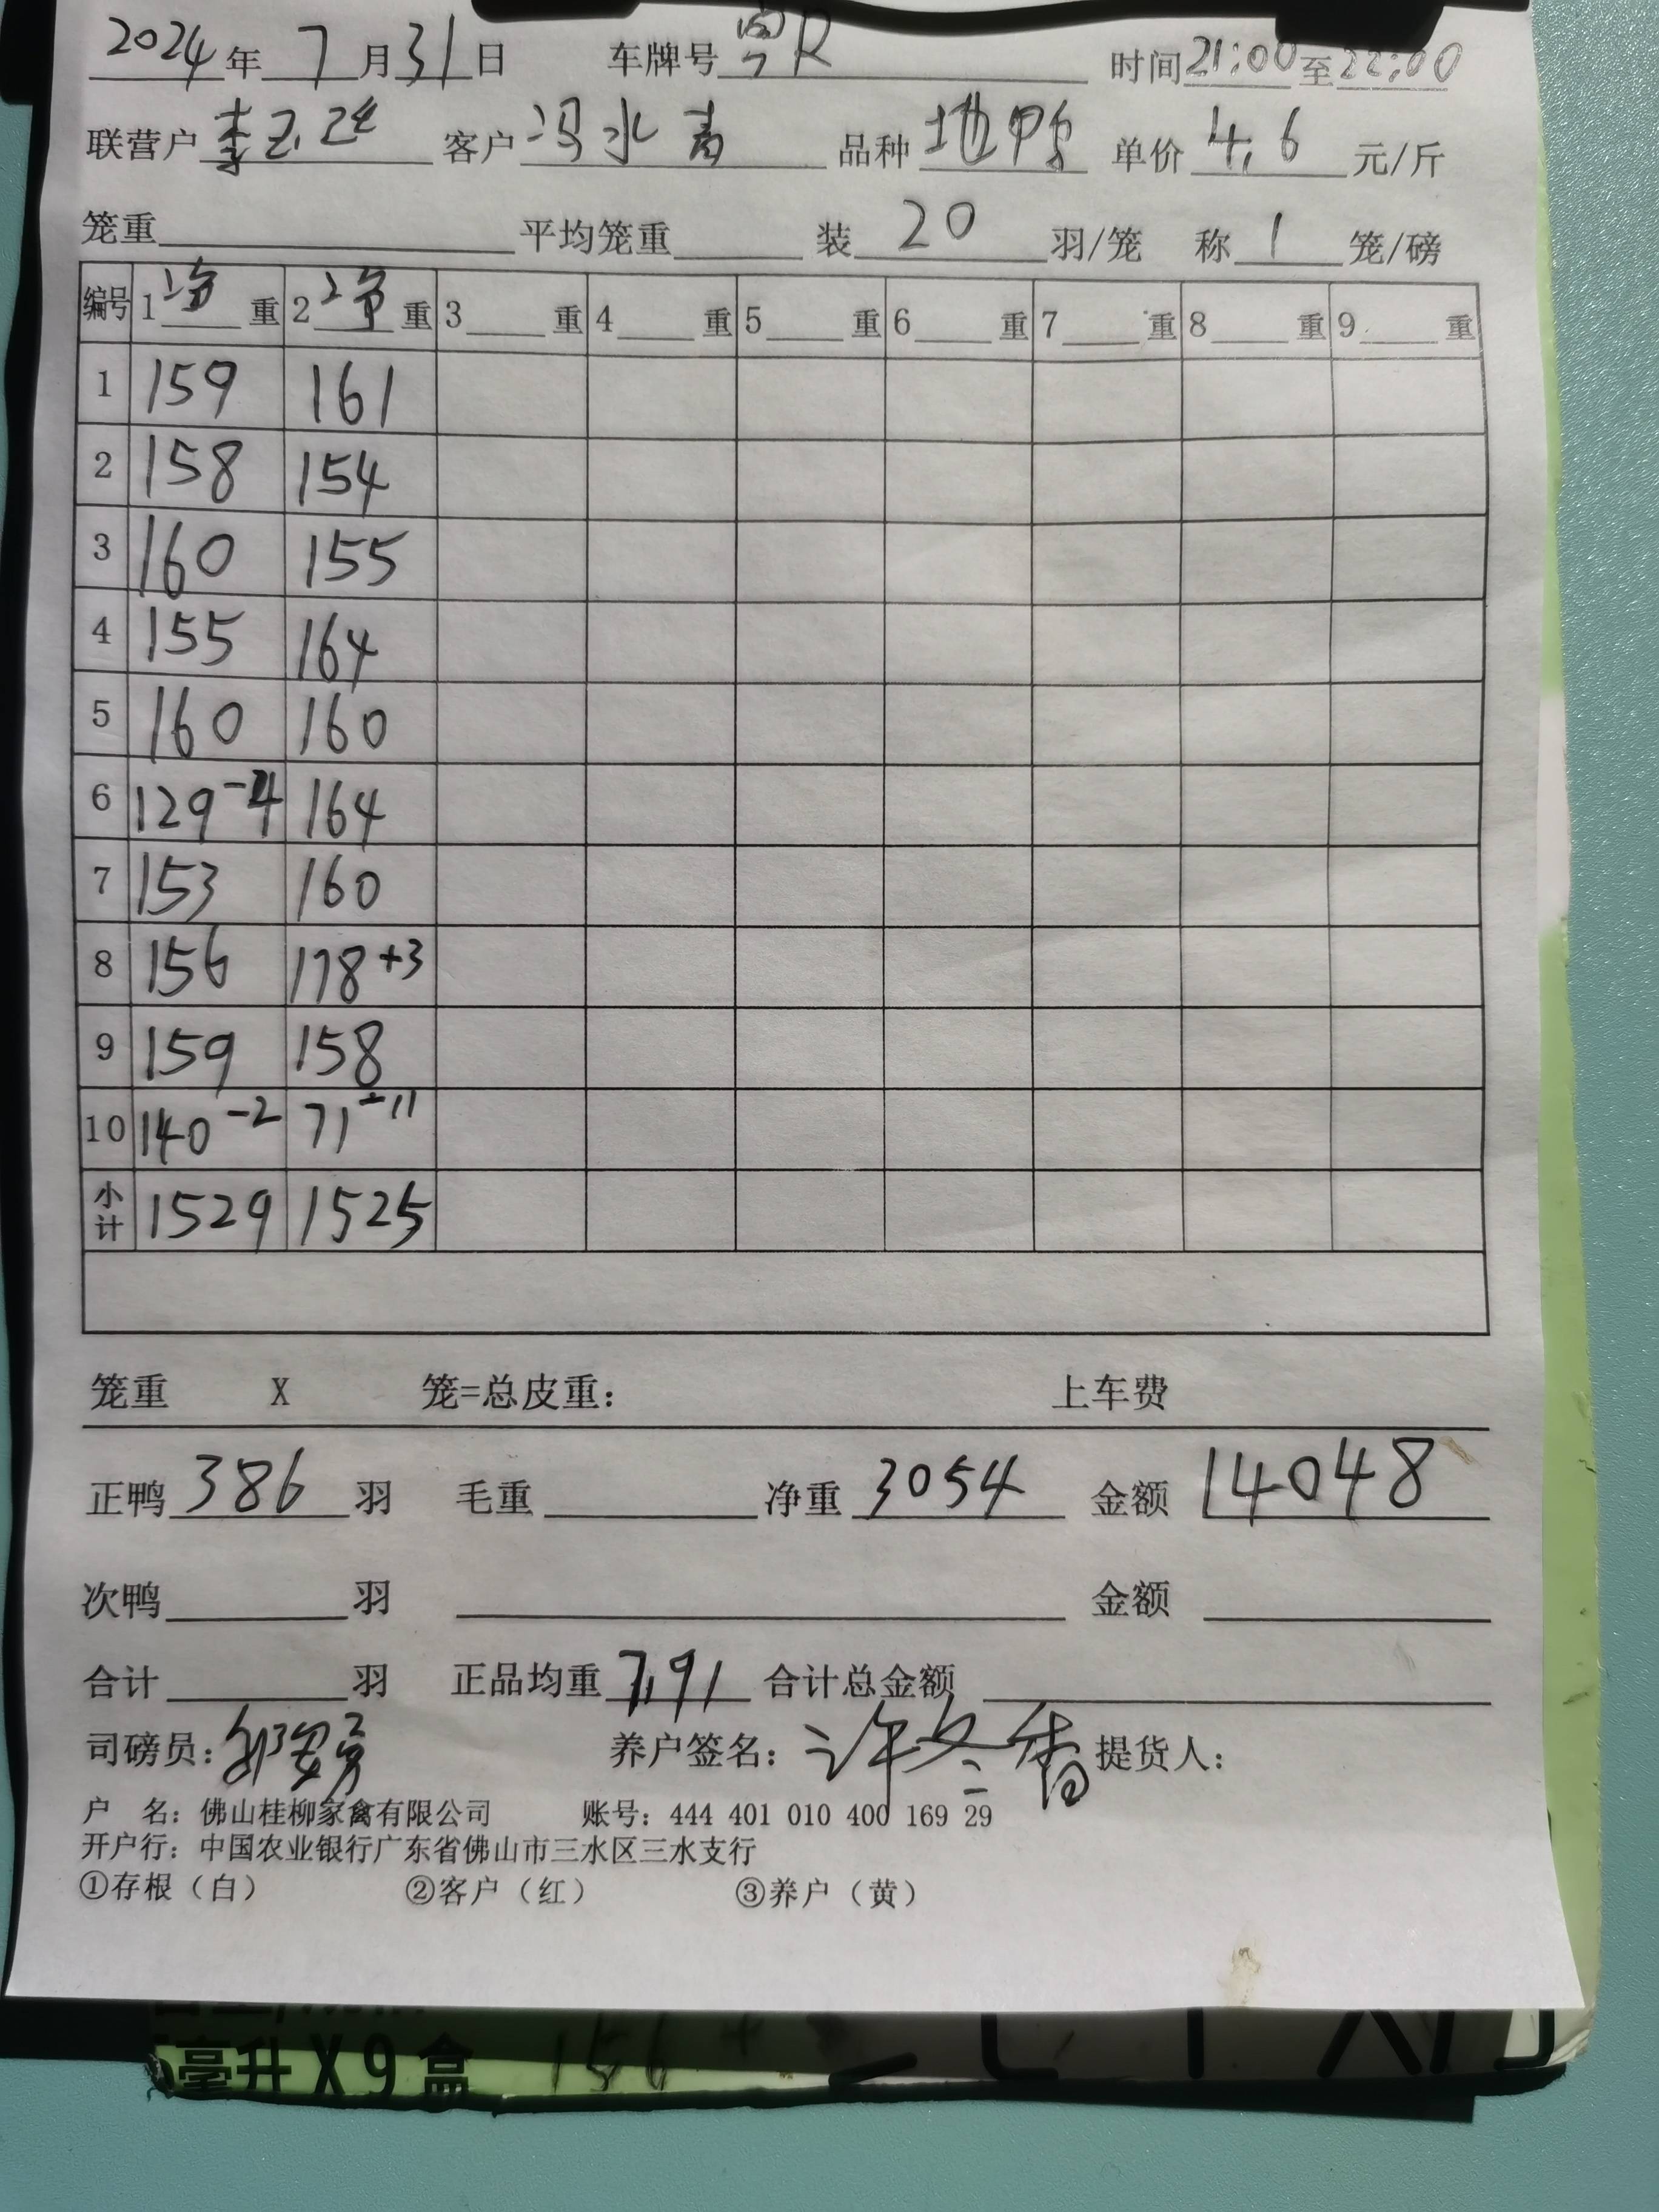 2024年 7月31日 车牌号 粤R 时间21:00至22:00
联营户 李 客户 冯水 品种 地鸭 单价 4.6 元/斤
笼重 平均笼重 装 20 羽/笼 称 1 笼/磅
编号 1 净 重 2 净 重 3 重 4 重 5 重 6 重 7 重 8 重 9 重
1 159 161
2 158 154
3 160 155
4 155 164
5 160 160
6 129-4 164
7 153 160
8 156 178+3
9 159 158
10 140-2 71-11
小计 1529 1525
笼重 X 笼=总皮重: 上车费
正鸭 386 羽 毛重 净重 3054 金额 14048
次鸭 羽 金额
合计 羽 正品均重 7.91 合计总金额
司磅员: 养户签名: 许冬香 提货人:
户 名: 佛山桂柳家禽有限公司 账号: 444 401 010 400 169 29
开户行: 中国农业银行广东省佛山市三水区三水支行
①存根（白） ②客户（红） ③养户（黄）
毫升X9盒 156